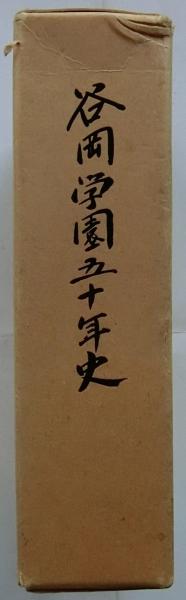 谷岡学園五十年史